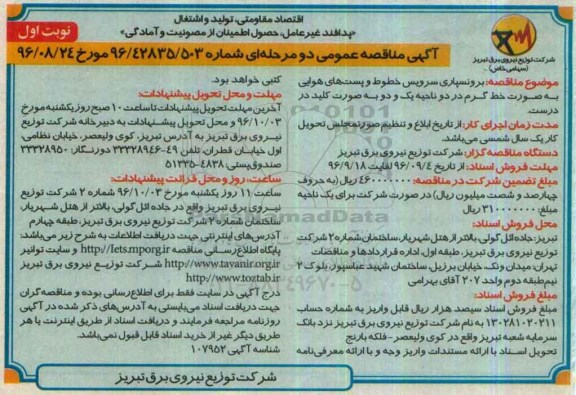 اقتصاد مقاومتی، تولید و اشتغال
«پدافند غیرعامل، حصول اطمینان از مصونیت و آمادگی»
نوبت اول
آگهی مناقصه عمومی دو مرحله‌ای شماره ۹۶/۴۲۸۳۵/۵۰۳ مورخ ۹۶/۰۸/۲۴
شرکت توزیع نیروی برق تبریز
(سهامی خاص)
موضوع مناقصه: برونسپاری سرویس خطوط و پست‌های هوایی
به صورت خط گرم در دو ناحیه یک و دو به صورت کلید در
درست.
مدت زمان اجرای کار: از تاریخ ابلاغ و تنظیم صورتمجلس تحویل
کار یک سال شمسی می‌باشد.
دستگاه مناقصه گزار: شرکت توزیع نیروی برق تبریز
مهلت فروش اسناد: از تاریخ ۹۶/۰۹/۴ لغایت ۹۶/۹/۱۸
مبلغ تضمین شرکت در مناقصه: ۴۶۰۰۰۰۰۰۰ ریال (به حروف
چهارصد و شصت میلیون ریال) در صورت شرکت برای یک ناحیه
مبلغ ۳۱۰۰۰۰۰۰۰ ریال
محل فروش اسناد:
تبریز: جاده ائل گولی، بالاتر از هتل شهریار، ساختمان شماره ۲ شرکت
توزیع نیروی برق تبریز، طبقه اول، اداره قراردادها و مناقصات
تهران: میدان ونک، خیابان برزیل، ساختمان شهید عباسپور، بلوک ۲
نیم‌طبقه دوم واحد ۲۰۷ آقای بهرامی
مبلغ فروش اسناد:
مبلغ فروش اسناد سیصد هزار ریال قابل واریز به شماره حساب
۱۳۰۲۸۱۰۲۰۲۱۱ به نام شرکت توزیع نیروی برق تبریز نزد بانک
سرمایه شعبه تبریز واقع در کوی ولیعصر - فلکه بارنج
تحویل اسناد با ارائه مستندات واریز وجه و با ارائه معرفی‌نامه
کتبی خواهد بود.
مهلت و محل تحویل پیشنهادات:
آخرین مهلت تحویل پیشنهادات تا ساعت ۱۰ صبح روز یکشنبه مورخ
۹۶/۱۰/۰۳ و محل تحویل پیشنهادات به دبیرخانه شرکت توزیع
نیروی برق تبریز به آدرس تبریز، کوی ولیعصر، خیابان نظامی،
اول خیابان قطران، تلفن ۴۹-۳۳۳۲۸۹۴۶ دورنگار: ۳۳۳۲۸۹۵۰
صندوق پستی: ۴۸۳۸-۵۱۳۳۵
ساعت، روز و محل قرائت پیشنهادات:
ساعت ۱۱ روز یکشنبه مورخ ۹۶/۱۰/۰۳ شماره ۲ شرکت توزیع
نیروی برق تبریز واقع در جاده ائل گولی، بالاتر از هتل شهریار،
ساختمان شماره ۲ شرکت توزیع نیروی برق تبریز، طبقه چهارم
آدرس‌های اینترنتی جهت دریافت اطلاعات به شرح زیر می‌باشد:
پایگاه اطلاع‌رسانی مناقصه http://iets.mporg.ir و سایت توانیر
http://www.tavanir.org.ir شرکت توزیع نیروی برق تبریز
http://www.toztab.ir
درج آگهی در سایت فقط برای اطلاع‌رسانی بوده و مناقصه‌گران
جهت دریافت اسناد می‌بایستی به آدرس‌های ذکر شده در آگهی
روزنامه مراجعه فرمایند و دریافت اسناد از طریق اینترنت یا هر
طریق دیگر غیر از خرید اسناد قابل قبول نمی‌باشد.
شناسه آگهی ۱۰۷۹۵۲
شرکت توزیع نیروی برق تبریز